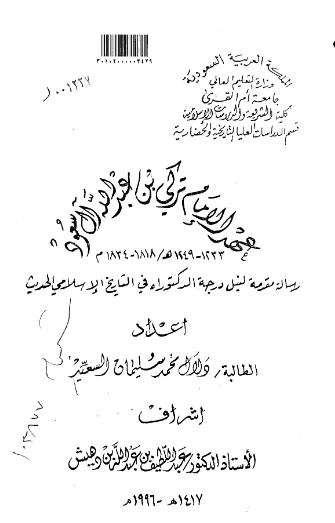 ٣٠١٠٢٠٠٠٠٠٣٤٢٩
المملكة العربية السعودية
وزارة التعليم العالي
جامعة أم القرى
كلية الشريعة والدراسات الإسلامية
قسم الدراسات العليا التاريخية والحضارية
٠٠١٢٣٧
عهد الإمام تركي بن عبد الله آل سعود
١٢٣٣-١٢٤٩هـ/١٨١٨-١٨٣٤م
رسالة مقدمة لنيل درجة الدكتوراه في التاريخ الإسلامي الحديث
إعداد
الطالبة/ دلال محمد سليمان السعيد
إشراف
الأستاذ الدكتور عبد اللطيف بن عبد الله بن دهيش
١٤١٧هـ-١٩٩٦م